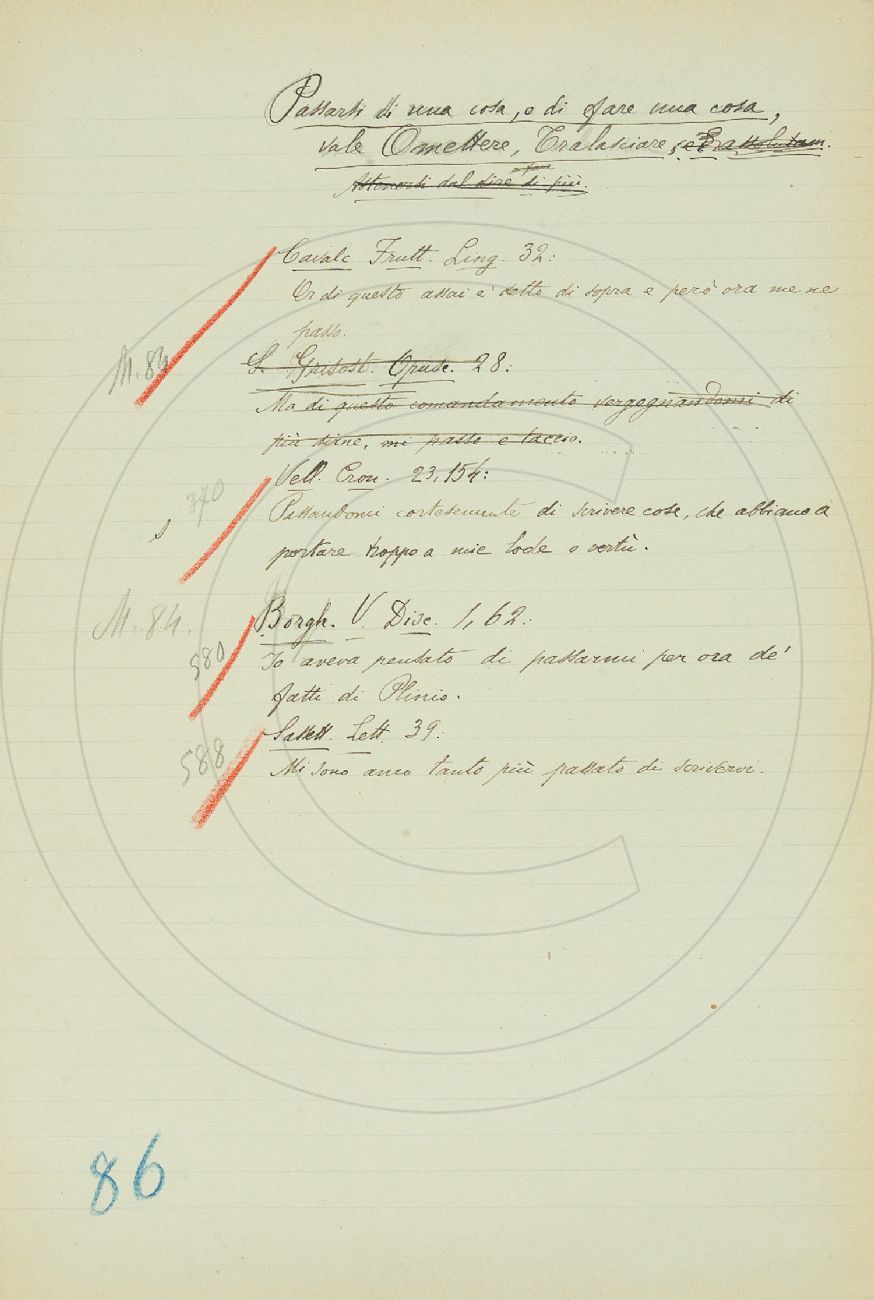 Passarsi di una cosa, o di fare una cosa,
vale Omettere, Tralasciare, e assolutam.
o fare
Astenersi dal dire di più.
Cavalc. Frutt. Ling. 32:
Or di questo assai è detto di sopra e però ora me ne
passo.
M. 84
S. Grisost. Opusc. 28:
Ma di questo comandamento vergognandomi di
più dirne, mi passo e taccio.
Vell. Cron. 23, 154:
370
Passandomi cortesemente di scrivere cose, che abbiano a
s
portare troppo a mie lode o vertù.
M. 84.
Borgh. V. Disc. 1, 62:
580
Io aveva pensato di passarmi per ora de'
fatti di Plinio.
Sassett. Lett. 39:
588
Mi sono anco tanto più passato di scrivervi.
86